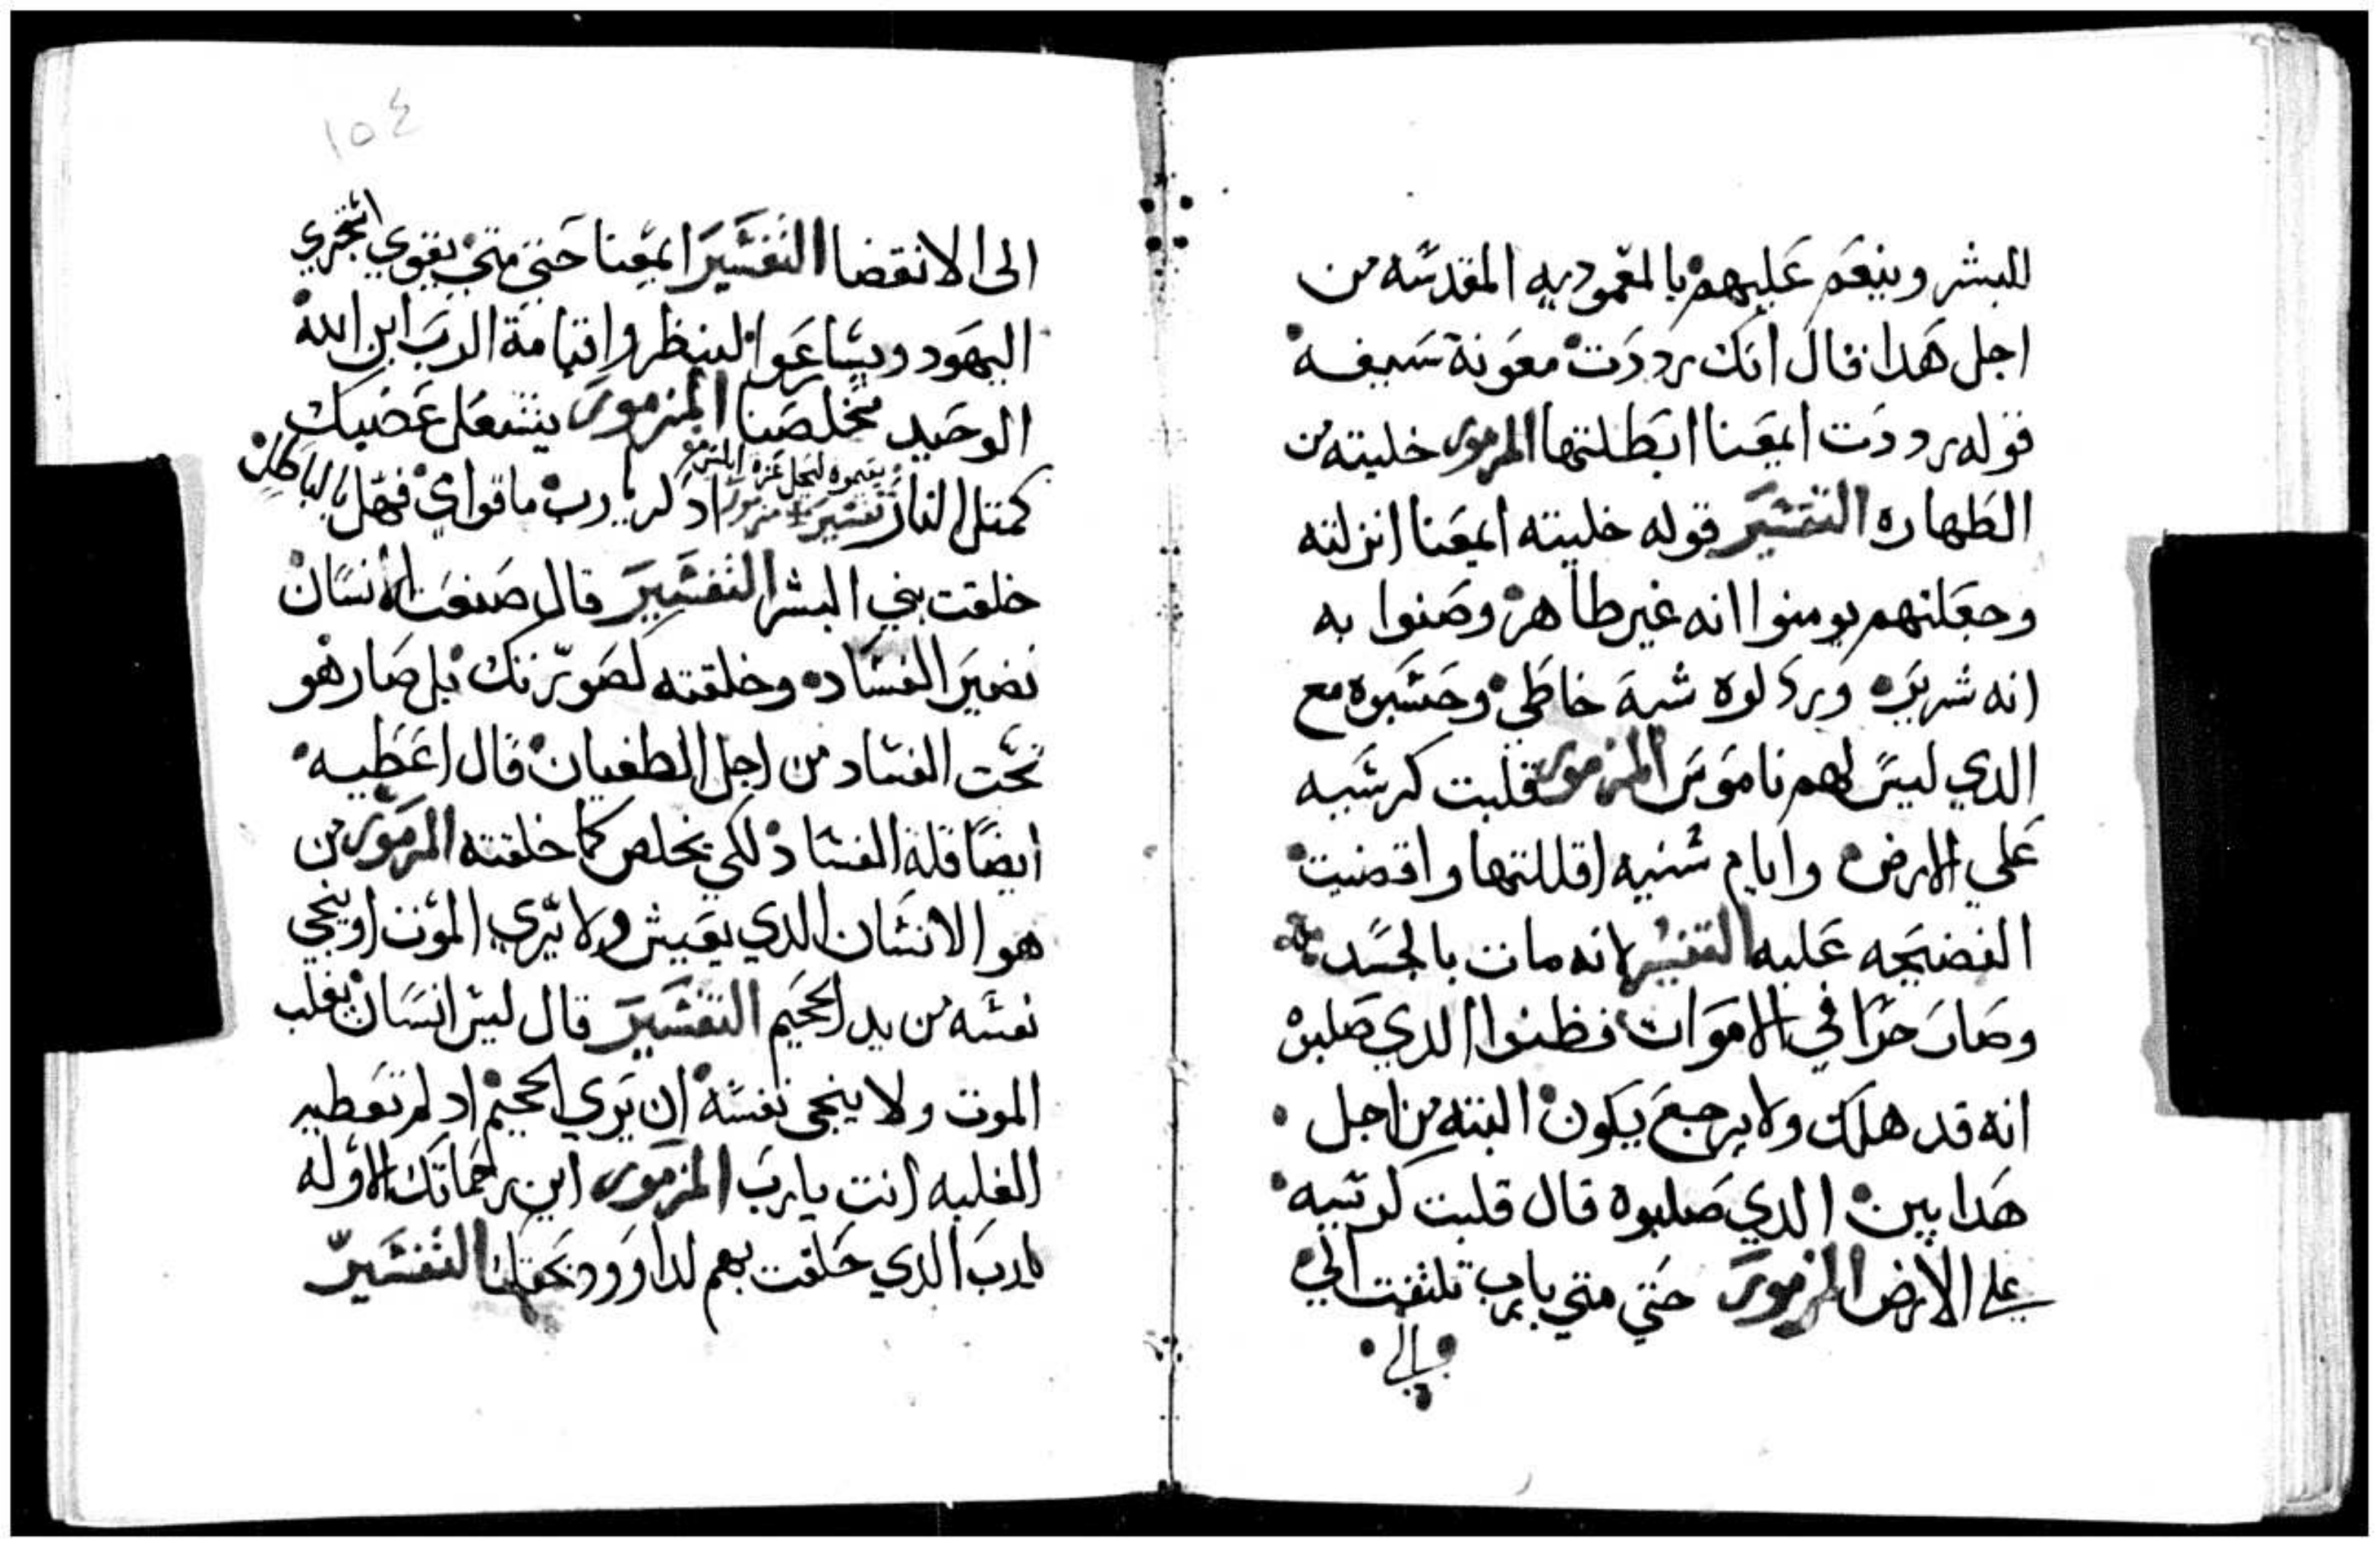 للبشر وينعم عليهم بالمعموديه المقدسه من
اجل هدا قال انك رددت معونة سيفه
قوله رددت ايمعنا ابطلتها المزمور خليته من
الطهاره التفسير قوله خليته ايمعنا انزلته
وجعلتهم يومنوا انه غير طاهر وصنعوا به
انه شرير وردلوه شبه خاطي وحسبوه مع
الدي ليس لهم ناموس المزمور قلبت كرسيه
علي الارض وايام سنيه اقللتها واقضيت
الفضيحه عليه التفسير انه مات بالجسد
وصار حرا في الاموات فظنوا الدي صلبوه
انه قد هلك ولا يرجع يكون البته من اجل
هدا بين الدي صلبوه قال قلبت كرسيه
علي الارض المزمور حتي متي يا رب تلتفت الي
الي
١٥٤
الى الانقضا التفسير ايمعنا حتي متي يقوي التجري
اليهود ويسارعوا لينظروا قيامة الرب ابن الله
الوحيد مخلصنا المزمور يشتعل غضبك
كمتل النار تفسير مزمور ادكر يا رب ما قواي فهل بالباطل
خلقت بني البشر التفسير قال صنعت الانسان
بغير الفساد وخلقته كصورتك بل صار هو
تحت الفساد من اجل الطغيان قال اعطيه
ايضا قلة الفساد لكي يخلص كما خلقته المزمور من
هو الانسان الدي يعيش ولا يري الموت او ينجي
نفسه من يد الجحيم التفسير قال ليس انسان يغلب
الموت ولا ينجي نفسه ان يري الجحيم اد لم تعطيه
الغلبه انت يا رب المزمور اين رحماتك الاوله
يا رب الدي حلفت بهم لداوود بحقك التفسير